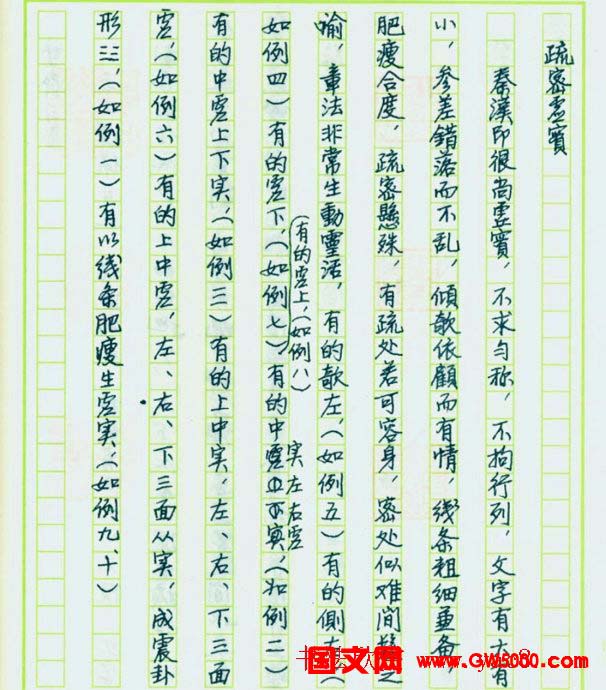 疏密虚實
秦漢印很尚虚實，不求匀称，不拘行列，文字有大有
小，参差錯落而不乱，傾欹依顧而有情，綫条粗细兼备，
肥瘦合度，疏密懸殊，有疏处若可容身，密处似难間髮之
喻，章法非常生動靈活，有的欹左，（如例五）有的側右（
（有的虚上，（如例八）
实左右虚
如例四）有的虚下，（如例七）有的中，（如例二）
有的中虚上下实，（如例三）有的上中实，左、右、下三面
虚，（如例六）有的上中虚，左、右、下三面从实，成震卦
形三，（如例一）有以线条肥瘦生虚实，（如例九、十）
国文网
www.GW5000.com